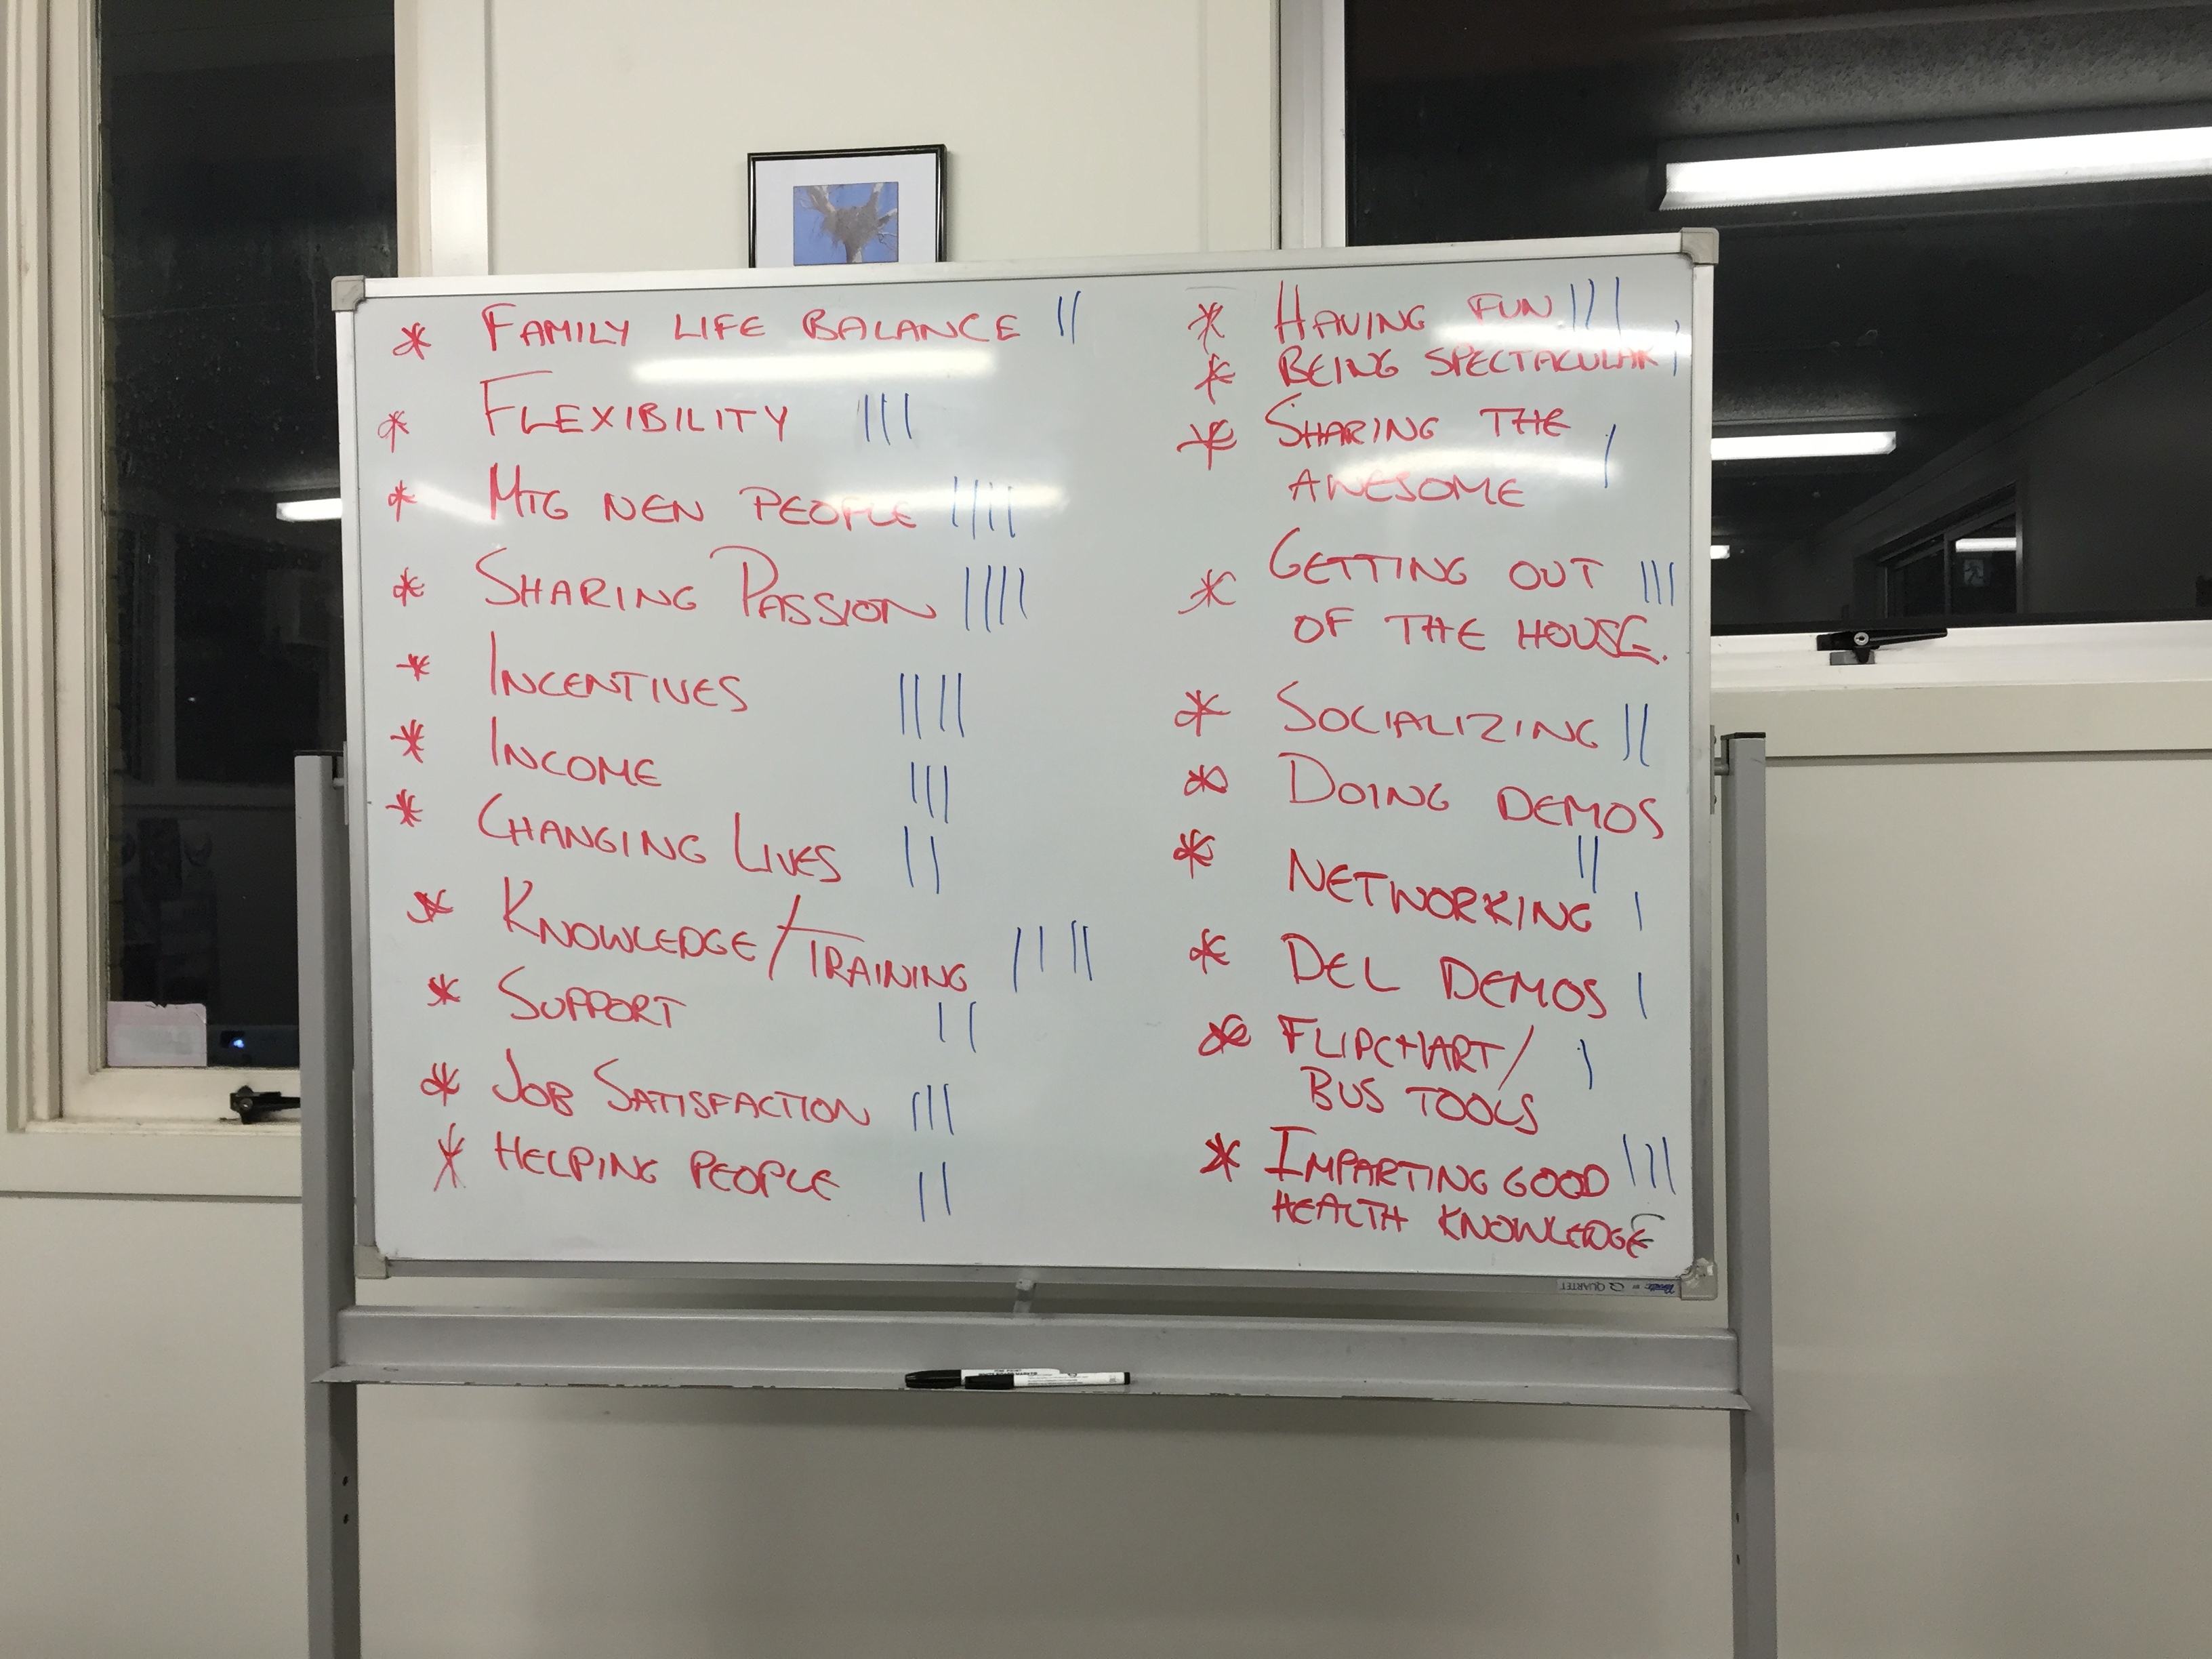 * FAMILY LIFE BALANCE ||
* FLEXIBILITY |||
* MTG NEW PEOPLE ||||
* SHARING PASSION ||||
* INCENTIVES ||||
* INCOME |||
* CHANGING LIVES ||
* KNOWLEDGE/TRAINING ||||
* SUPPORT ||
* JOB SATISFACTION |||
* HELPING PEOPLE ||
* HAVING FUN |||
* BEING SPECTACULAR |
* SHARING THE |
AWESOME
* GETTING OUT |||
OF THE HOUSE.
* SOCIALIZING ||
* DOING DEMOS
||
* NETWORKING |
* DEL DEMOS |
* FLIPCHART/ |
BUS TOOLS
* IMPARTING GOOD |||
HEALTH KNOWLEDGE
QUARTET